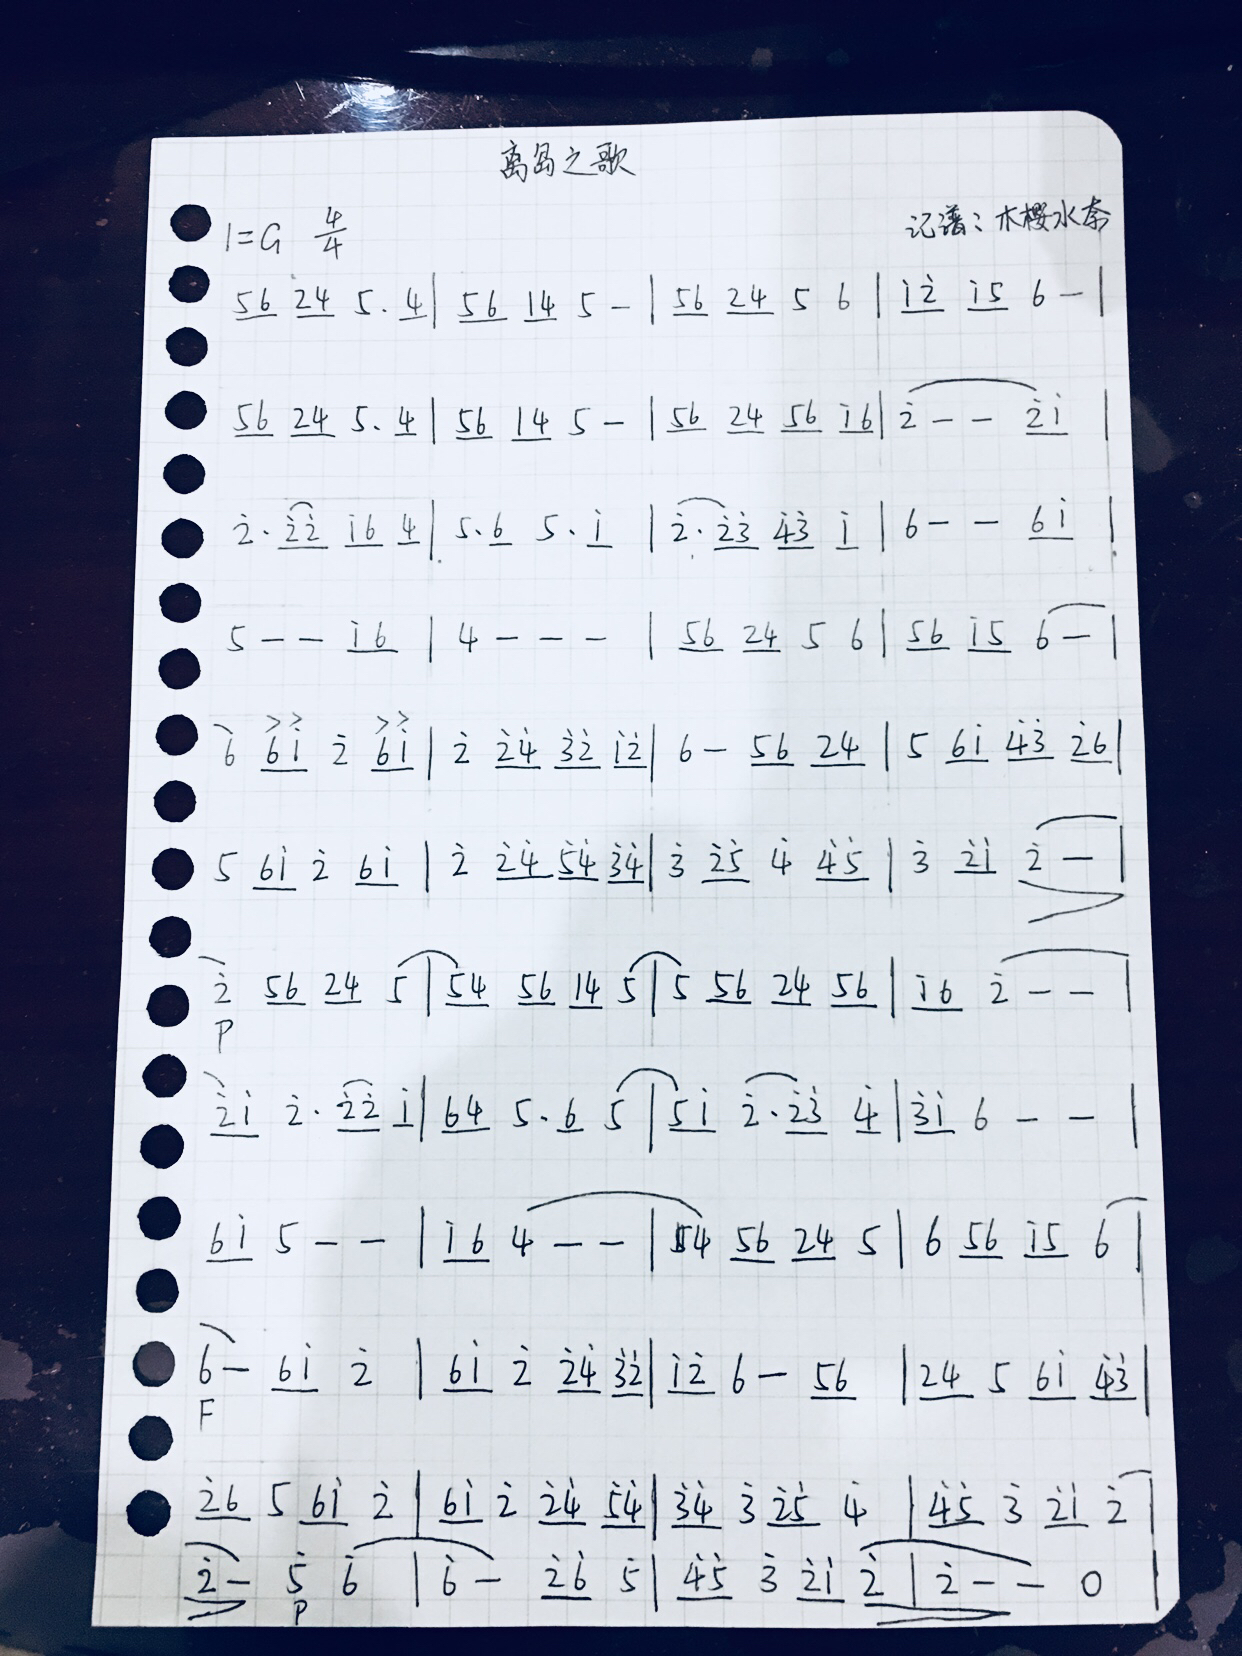 离岛之歌
1=G 4/4
记谱：木樱水奈
56 24 5. 4 | 56 14 5 – | 56 24 5 6 | i2̇ i5 6 – |
56 24 5. 4 | 56 14 5 – | 56 24 56 i6 | 2̇ – – 2̇i |
2̇. 2̇2̇ i6 4 | 5. 6 5. i | 2̇. 2̇3̇ 4̇3̇ i | 6 – – 6i |
5 – – i6 | 4 – – – | 56 24 5 6 | 56 i5 6 – |
6 >6>i 2̇ >6>i | 2̇ 2̇4̇ 3̇2̇ i2̇ | 6 – 56 24 | 5 6i 4̇3̇ 2̇6 |
5 6i 2̇ 6i | 2̇ 2̇4̇ 5̇4̇ 3̇4̇ | 3̇ 2̇5̇ 4̇ 4̇5̇ | 3̇ 2̇i 2̇ – |
2̇ 56 24 5 | 54 56 14 5 | 5 56 24 56 | i6 2̇ – – |
P
2̇i 2̇. 2̇2̇ i | 64 5. 6 5 | 5i 2̇. 2̇3̇ 4̇ | 3̇i 6 – – |
6i 5 – – | i6 4 – – | 54 56 24 5 | 6 56 i5 6 |
6 – 6i 2̇ | 6i 2̇ 2̇4̇ 3̇2̇ | i2̇ 6 – 56 | 24 5 6i 4̇3̇ |
F
2̇6 5 6i 2̇ | 6i 2̇ 2̇4̇ 5̇4̇ | 3̇4̇ 3̇ 2̇5̇ 4̇ | 4̇5̇ 3̇ 2̇i 2̇ |
2̇ – 5̇ 6̇ | 6̇ – 2̇6̇ 5̇ | 4̇5̇ 3̇ 2̇i 2̇ | 2̇ – – 0 |
P